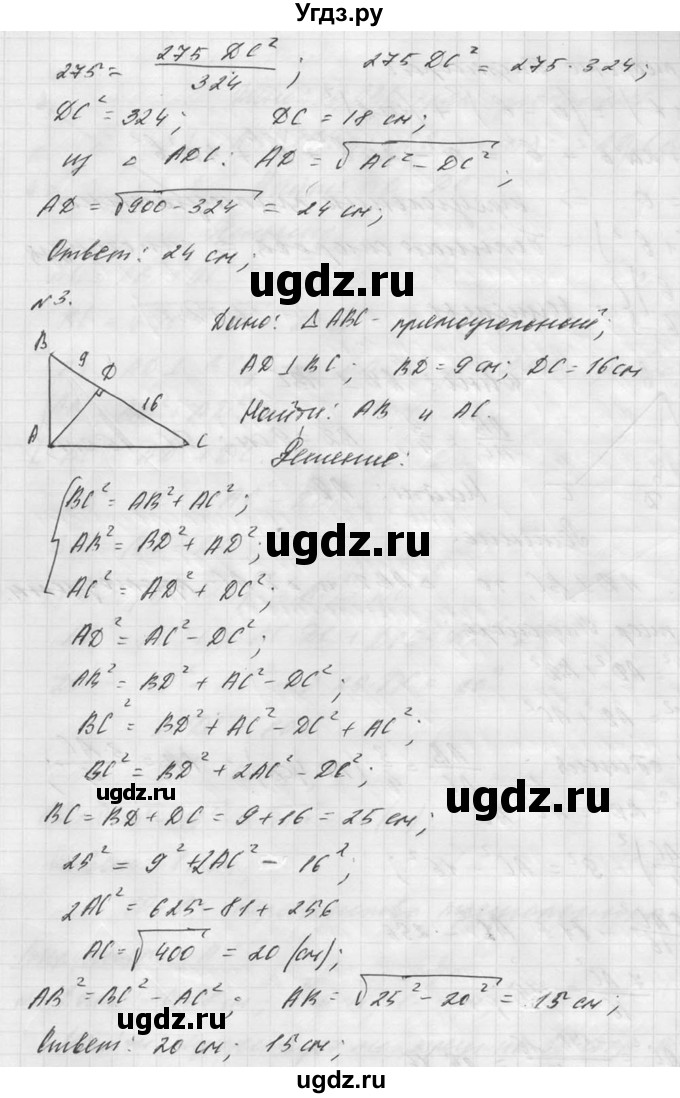 Угдз.ру
275 = 275 DC² / 324 ; 275 DC² = 275 · 324;
DC² = 324; DC = 18 см;
из △ ADC: AD = √(AC² − DC²);
AD = √(900 − 324) = 24 см;
Ответ: 24 см;
ugdz.ru
№3.
Дано: △ ABC - прямоугольный;
B 9 D 16 A C
AD ⊥ BC; BD = 9 см; DC = 16 см
Найти: AB и AC.
Решение:
BC² = AB² + AC²;
AB² = BD² + AD²;
ugdz.ru
AC² = AD² + DC²;
AD² = AC² − DC²;
AB² = BD² + AC² − DC²;
BC² = BD² + AC² − DC² + AC²;
BC² = BD² + 2AC² − DC²;
ugdz.ru
ugdz.ru
BC = BD + DC = 9 + 16 = 25 см;
25² = 9² + 2AC² − 16²;
2AC² = 625 − 81 + 256
AC = √400 = 20 (см);
AB² = BC² − AC²; AB = √(25² − 20²) = 15 см;
ugdz.ru
Ответ: 20 см; 15 см;
ugdz.ru